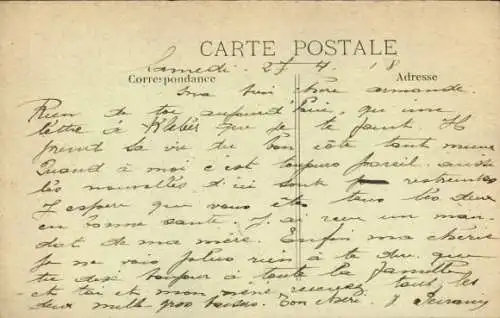 CARTE POSTALE
Samedi 27 4 18
Correspondance Adresse
Ma bien chère Armande.
Rien de toi aujourd'hui, qu'une
lettre à Kléber que je te joint. Il
prend sa vie du bon côté tant mieux
Quand à moi c'est toujours pareil. aussi
les nouvelles d'ici sont restreintes
J'espère que vous êtes tous les deux
en bonne santé. J'ai reçu un man
dat de ma mère. Enfin ma chérie
je ne vois plus rien à te dire que
de bonjour à toute la famille
et toi et mon recevez tous les
deux mille gros baisers. Ton chéri.